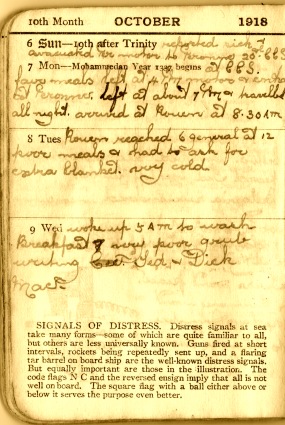 10th Month OCTOBER 1918
6 Sun—19th after Trinity reported sick &
evacuated per motor to Peronne 20 CCS
7 Mon—Mohammedan Year 1337 begins at CCS.
meals left at
at Peronne. left at about 7 PM & travelled
all night. arrived at Rouen at 8.30 AM
8 Tues Rouen reached 6 General at 12
poor meals & had to ask for
extra blanket. very cold
9 Wed woke up 5 AM to wash
Breakfast 8 very poor grub
writing Ted, Dick
Mac.
SIGNALS OF DISTRESS. Distress signals at sea
take many forms—some of which are quite familiar to all,
but others are less universally known. Guns fired at short
intervals, rockets being repeatedly sent up, and a flaring
tar barrel on board ship are the well-known distress signals.
But equally important are those in the illustration. The
code flags N C and the reversed ensign imply that all is not
well on board. The square flag with a ball either above or
below it serves the purpose even better.